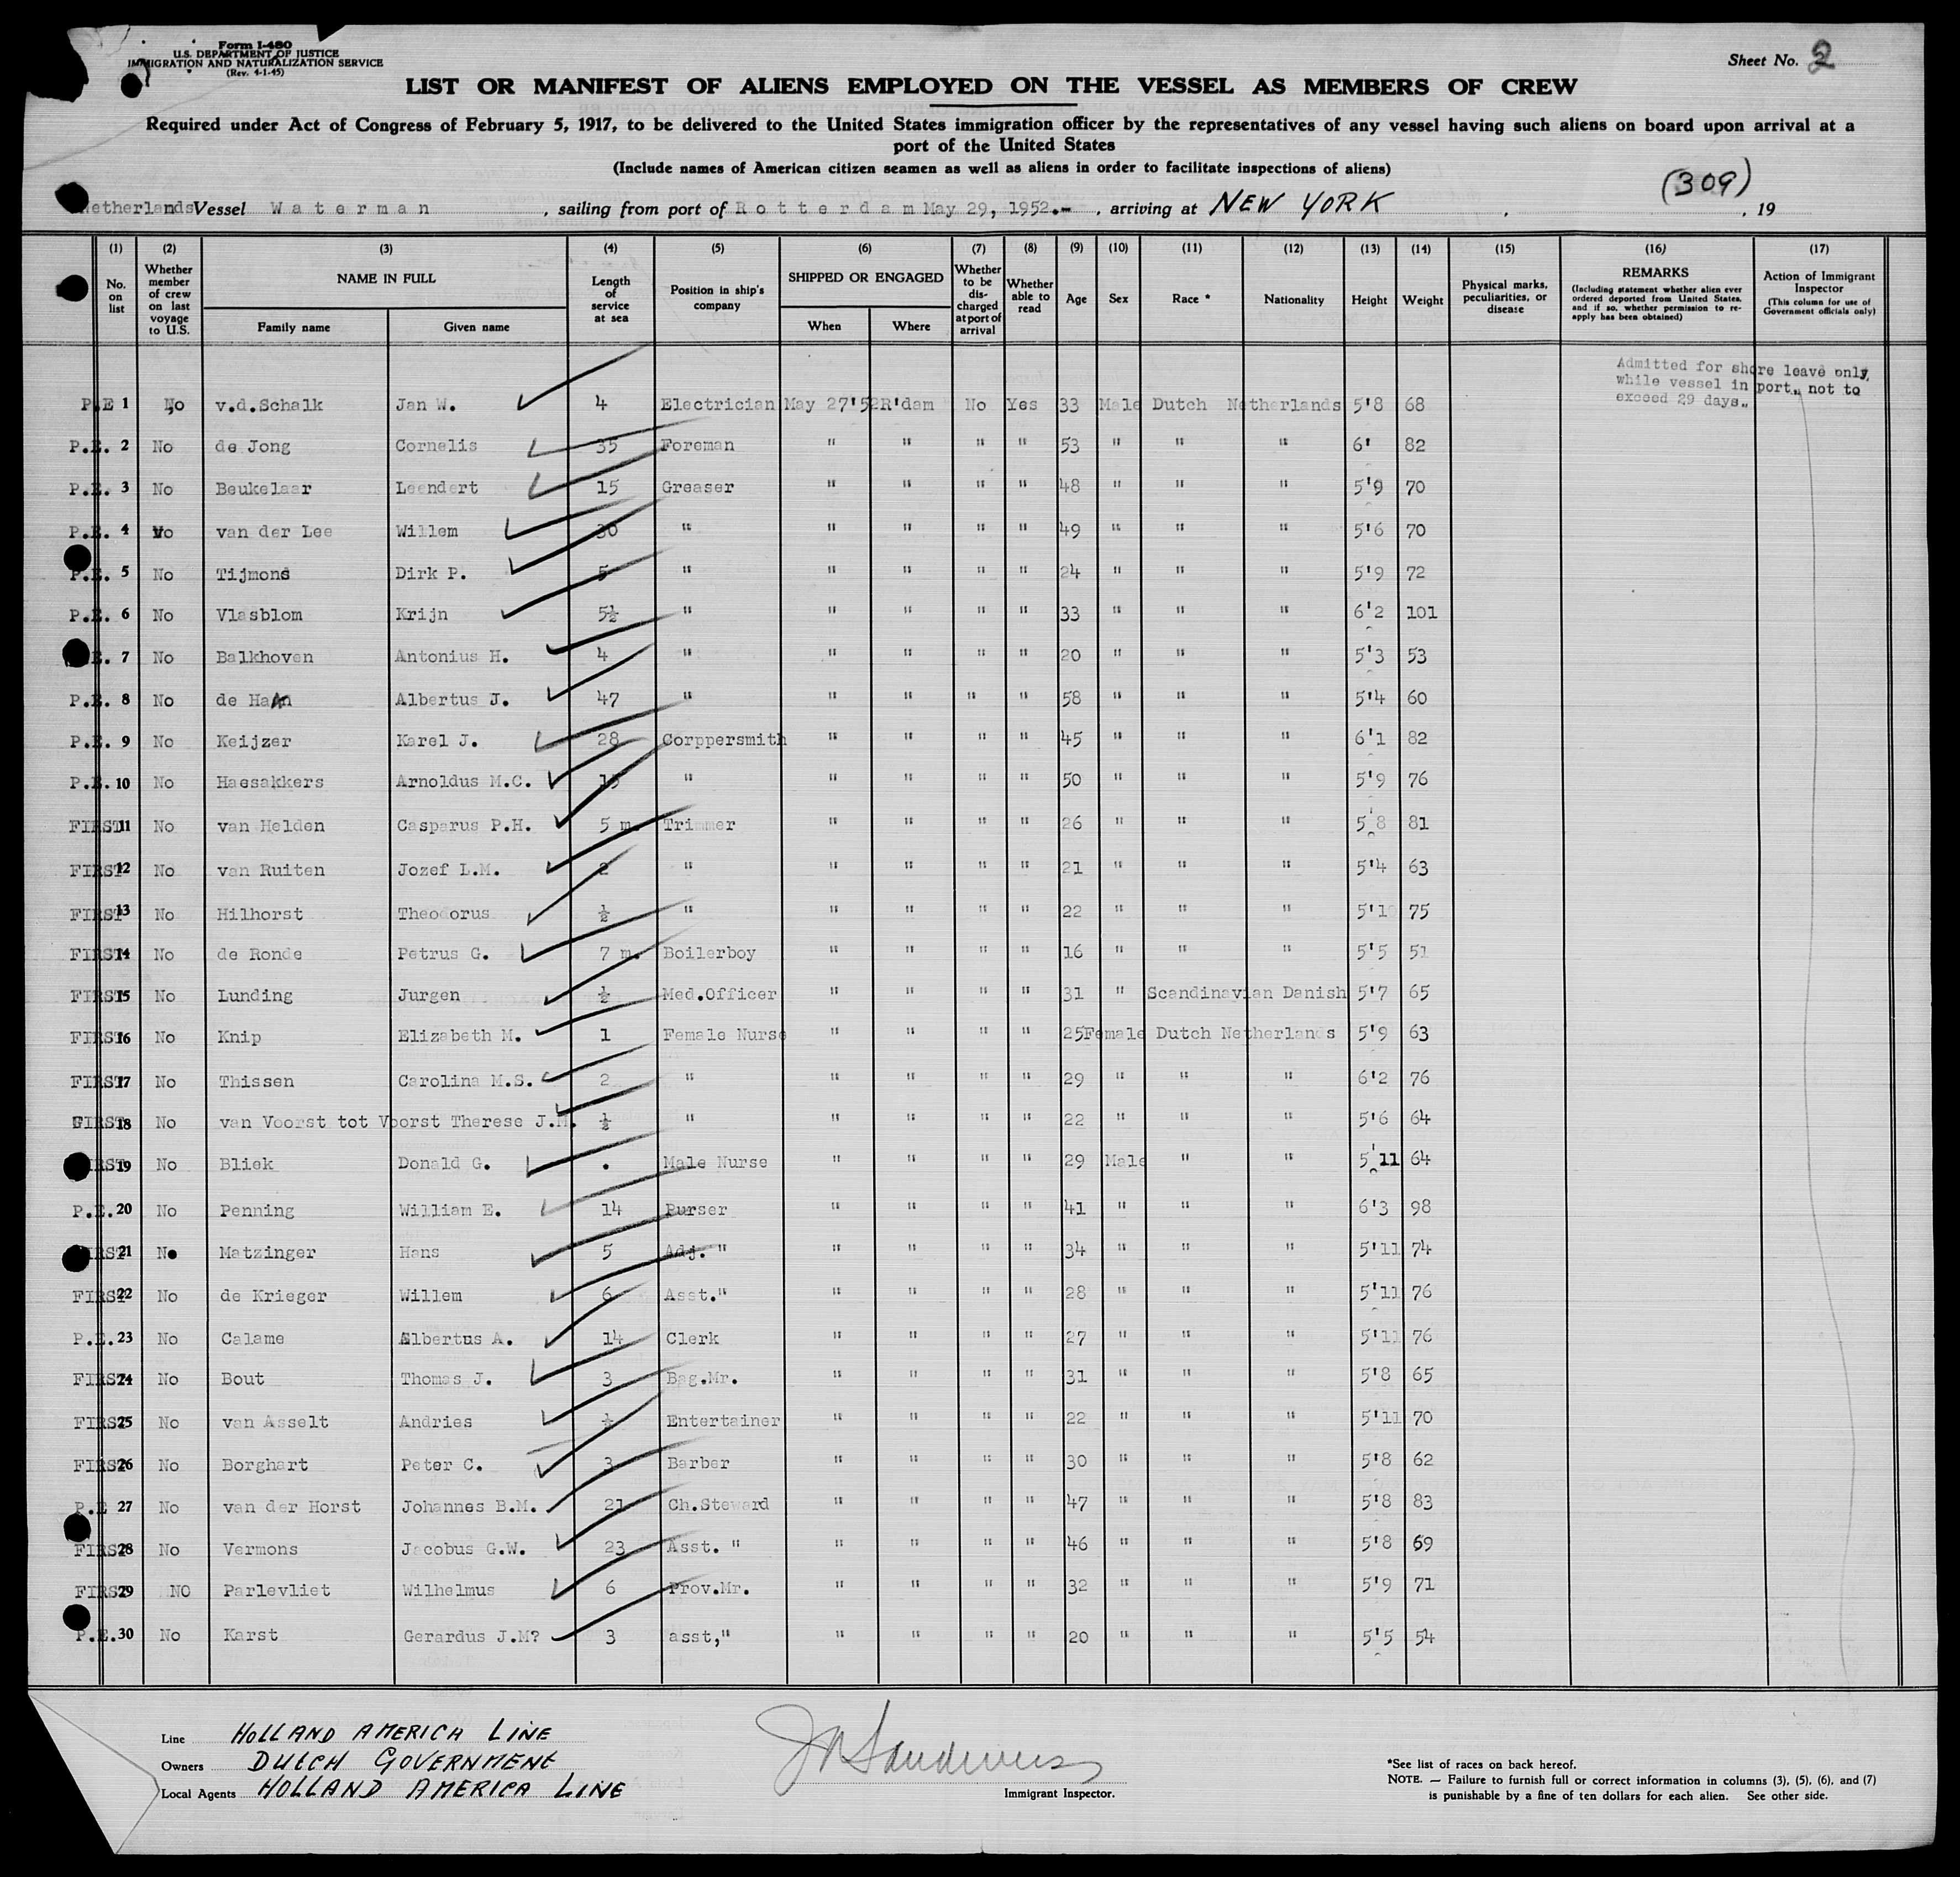 Form I-480
U.S. DEPARTMENT OF JUSTICE
IMMIGRATION AND NATURALIZATION SERVICE
(Rev. 4-1-45)
Sheet No. 2
LIST OR MANIFEST OF ALIENS EMPLOYED ON THE VESSEL AS MEMBERS OF CREW
Required under Act of Congress of February 5, 1917, to be delivered to the United States immigration officer by the representatives of any vessel having such aliens on board upon arrival at a
port of the United States
(Include names of American citizen seamen as well as aliens in order to facilitate inspections of aliens)
(309)
Netherlands Vessel Waterman, sailing from port of Rotterdam May 29, 1952.-, arriving at NEW YORK, 19
(1) (2) (3) (4) (5) (6) (7) (8) (9) (10) (11) (12) (13) (14) (15) (16) (17)
No. on list
Whether member of crew on last voyage to U.S.
NAME IN FULL
Family name
Given name
Length of service at sea
Position in ship's company
SHIPPED OR ENGAGED
When
Where
Whether to be discharged at port of arrival
Whether able to read
Age
Sex
Race *
Nationality
Height
Weight
Physical marks, peculiarities, or disease
REMARKS
(Including statement whether alien ever ordered deported from United States, and if so, whether permission to re-apply has been obtained)
Action of Immigrant Inspector
(This column for use of Government officials only)
Admitted for shore leave only,
while vessel in port, not to
exceed 29 days.
P.E 1 No v.d.Schalk Jan W. 4 Electrician May 27'52 R'dam No Yes 33 Male Dutch Netherlands 5'8 68
P.E. 2 No de Jong Cornelis 35 Foreman " " " " 53 " " " 6' 82
P.E. 3 No Beukelaar Leendert 15 Greaser " " " " 48 " " " 5'9 70
P.E. 4 No van der Lee Willem 30 " " " " " 49 " " " 5'6 70
P.E. 5 No Tijmons Dirk P. 5 " " " " " 24 " " " 5'9 72
P.E. 6 No Vlasblom Krijn 5½ " " " " " 33 " " " 6'2 101
E. 7 No Balkhoven Antonius H. 4 " " " " " 20 " " " 5'3 53
P.E. 8 No de Haan Albertus J. 47 " " " " " 58 " " " 5'4 60
P.E. 9 No Keijzer Karel J. 28 Corppersmith " " " " 45 " " " 6'1 82
P.E. 10 No Haesakkers Arnoldus M.C. 15 " " " " " 50 " " " 5'9 76
FIRST 11 No van Helden Casparus P.H. 5 m. Trimmer " " " " 26 " " " 5'8 81
FIRST 12 No van Ruiten Jozef L.M. 2 " " " " " 21 " " " 5'4 63
FIRST 13 No Hilhorst Theodorus ½ " " " " " 22 " " " 75
FIRST 14 No de Ronde Petrus G. 7 m. Boilerboy " " " " 16 " " " 5'5 51
FIRST 15 No Lunding Jurgen ½ Med.Officer " " " " 31 " Scandinavian Danish 5'7 65
FIRST 16 No Knip Elizabeth M. 1 Female Nurse " " " " 25 Female Dutch Netherlands 5'9 63
FIRST 17 No Thissen Carolina M.S. 2 " " " " " 29 " " " 6'2 76
FIRST 18 No van Voorst tot Voorst Therese J.M. ½ " " " " " 22 " " " 5'6 64
FIRST 19 No Bliek Donald G. . Male Nurse " " " " 29 Male " " 5'11 64
P.E. 20 No Penning William E. 14 Purser " " " " 41 " " " 6'3 98
FIRST 21 No Matzinger Hans 5 Adj. " " " " " 34 " " " 5'11 74
FIRST 22 No de Krieger Willem 6 Asst." " " " " 28 " " " 5'11 76
P.E. 23 No Calame Albertus A. 14 Clerk " " " " 27 " " " 5'11 76
FIRST 24 No Bout Thomas J. 3 Bag.Mr. " " " " 31 " " " 5'8 65
FIRST 25 No van Asselt Andries ½ Entertainer " " " " 22 " " " 5'11 70
FIRST 26 No Borghart Peter C. 3 Barber " " " " 30 " " " 5'8 62
P.E 27 No van der Horst Johannes B.M. 21 Ch.Steward " " " " 47 " " " 5'8 83
FIRST 28 No Vermons Jacobus G.W. 23 Asst. " " " " " 46 " " " 5'8 69
FIRST 29 NO Parlevliet Wilhelmus 6 Prov.Mr. " " " " 32 " " " 5'9 71
P.E. 30 No Karst Gerardus J.M? 3 asst," " " " " 20 " " " 5'5 54
Line HOLLAND AMERICA LINE
Owners DUTCH GOVERNMENT
Local Agents HOLLAND AMERICA LINE
Immigrant Inspector.
*See list of races on back hereof.
NOTE. — Failure to furnish full or correct information in columns (3), (5), (6), and (7)
is punishable by a fine of ten dollars for each alien. See other side.